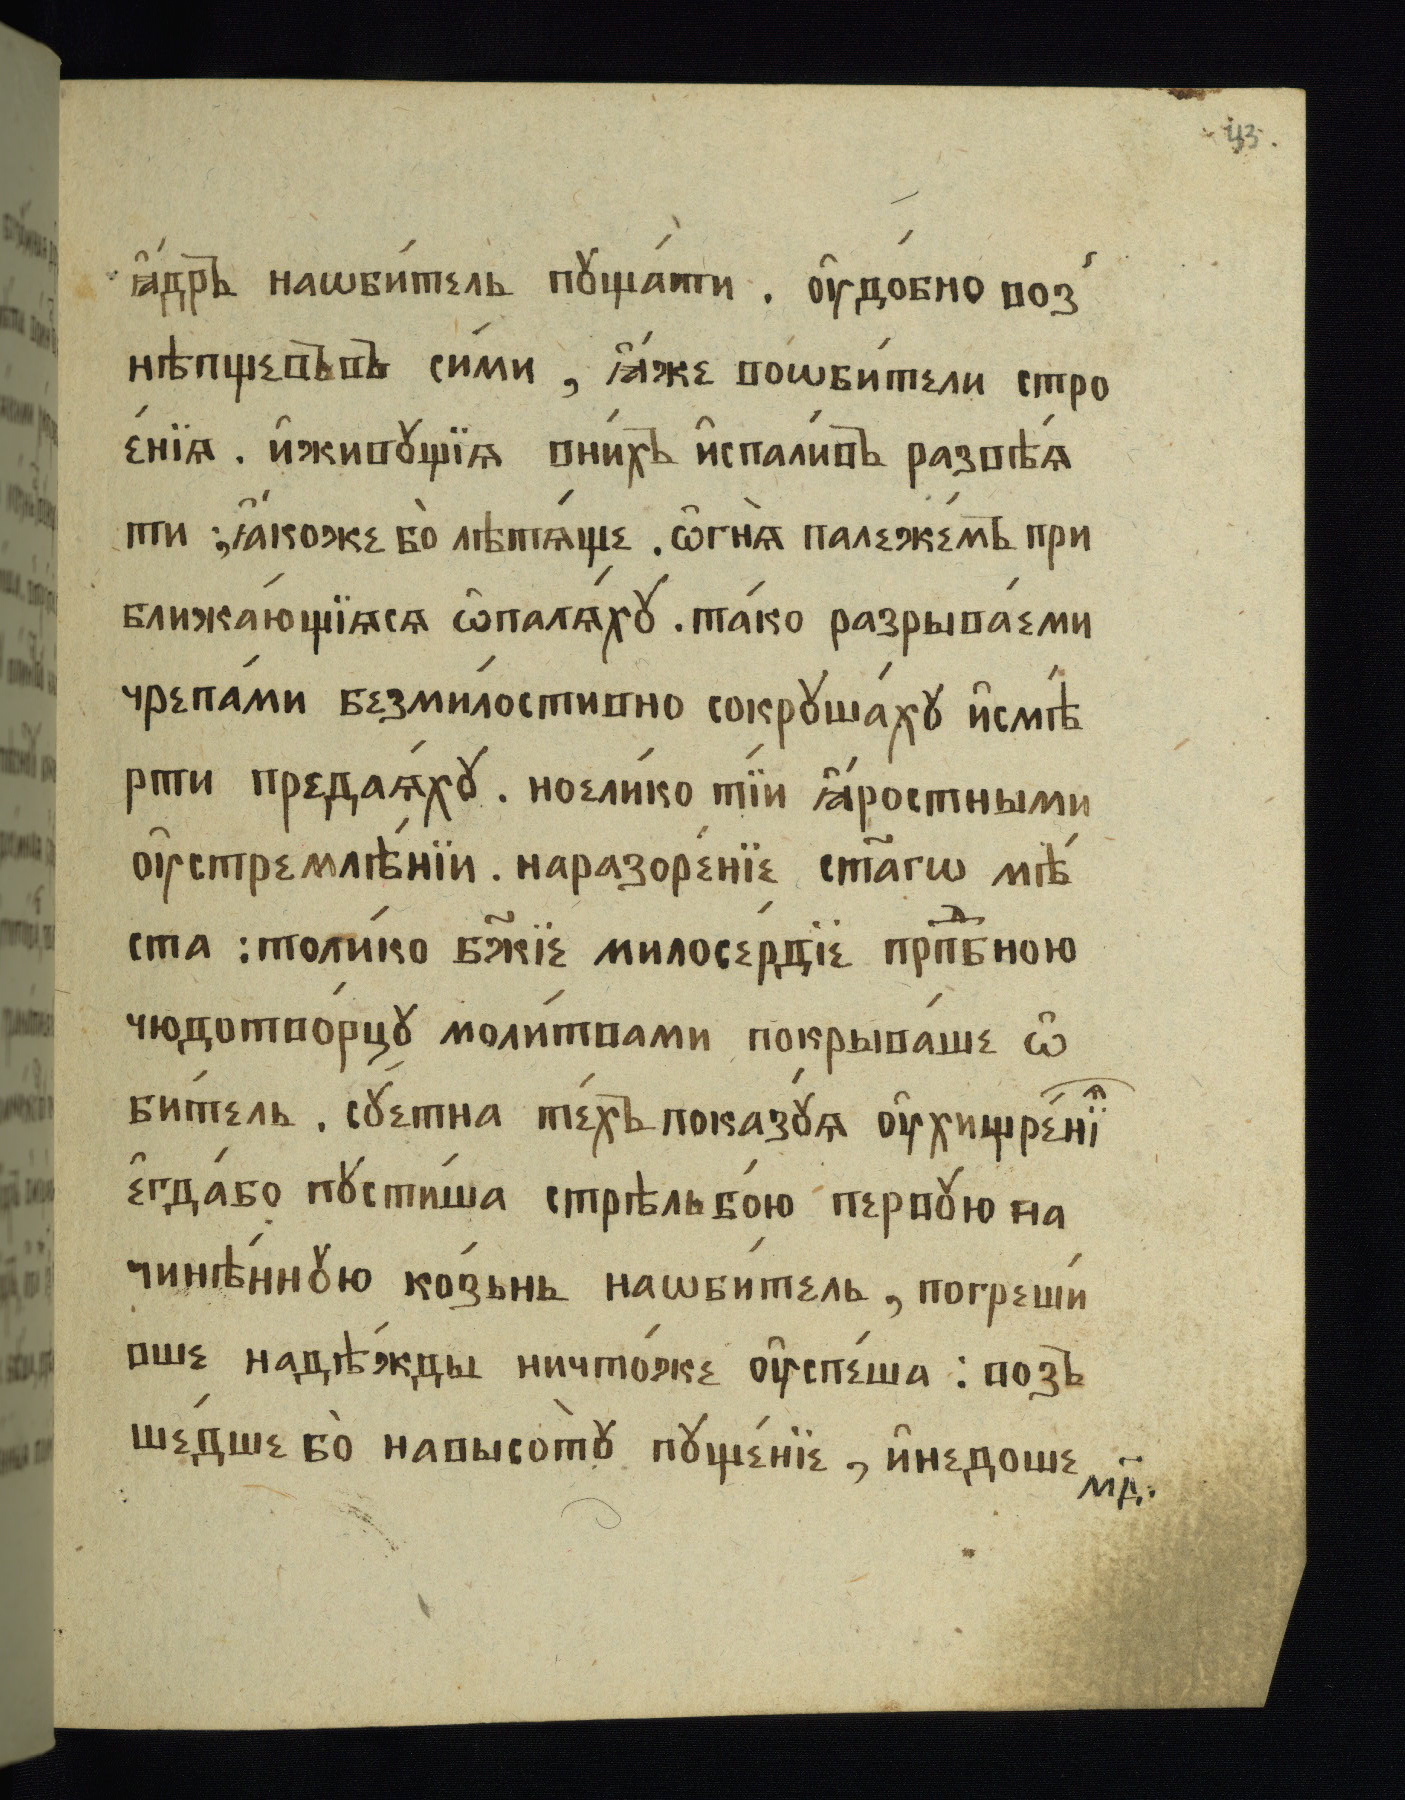 ꙗ҆́дръ наѡби́тель пꙋща́ти . ᲂу҆до́бно воз̾
нѣпщевъвъ си́ми , ꙗ҆́же воѡби́тели стро
е́нїѧ . и҆живꙋщїѧ вни́хъ и҆спали́въ развѣ́ѧ
ти ; ꙗ҆́коже бо̀ лѣтѧ́ще . ѡ҆гнѧ̀ палежемъ при
ближа́ющїѧсѧ ѡ҆палѧ́хꙋ . та́ко разрыва́еми
чрепа́ми безми́лостивно сокрꙋша́хꙋ и҆смѣ́
рти предаѧ́хꙋ . ноели́ко ті́и ꙗ҆́ростными
ᲂу҆стремлѣ́нїи . наразоре́нїе ст҃агѡ мѣ́
ста : толи́ко бж҃їе милосе́рдїе прпⷣбною
чюдотво́рцꙋ моли́твами покрыва́ше ѡ҆
би́тель . сꙋ́етна те́хъ показꙋ́ѧ ᲂу҆хищре́нїѧ
є҆гда́бо пꙋсти́ша стрѣльбо́ю первꙋю на
чинѣ́ннꙋю ко́зьнь наѡби́тель , погреши́
вше надѣ́жды ничто́же ᲂу҆спе́ша : возъ
ше́дше бо̀ навысотꙋ̀ пꙋще́нїе , и҆недоше
мд҃.